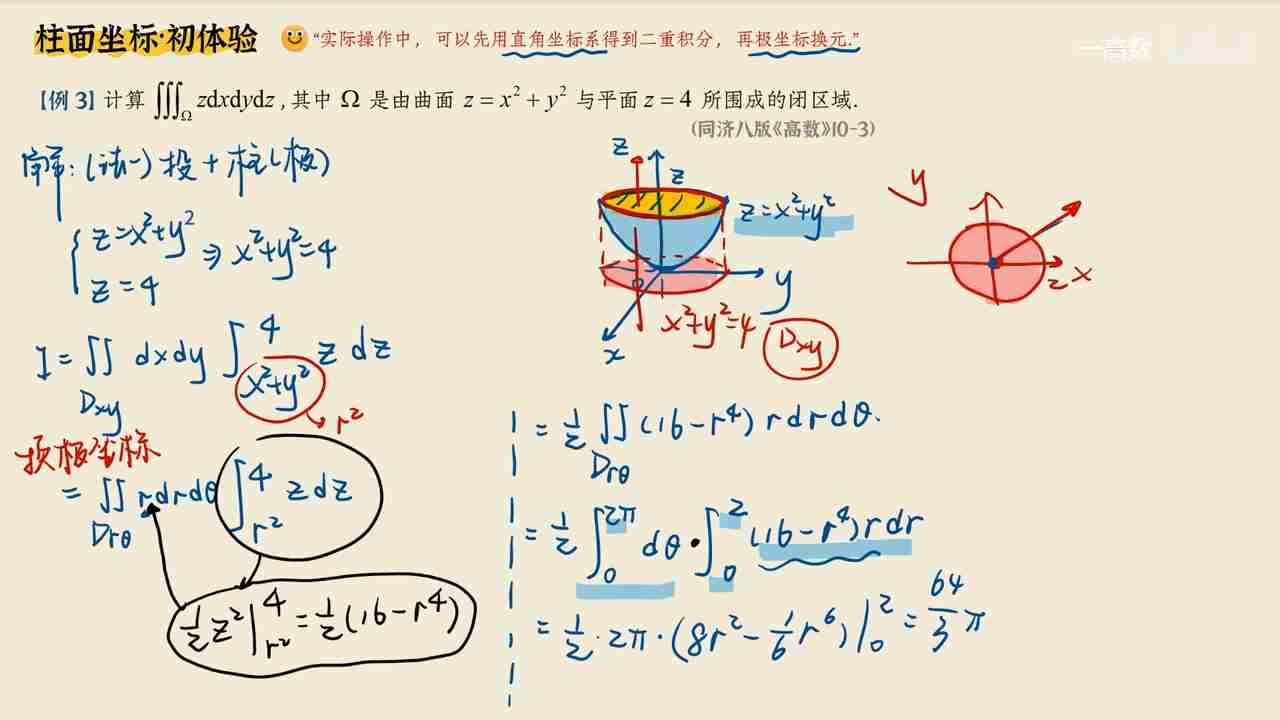 柱面坐标·初体验 “实际操作中，可以先用直角坐标系得到二重积分，再极坐标换元.”
一高数
【例 3】计算 ∭_Ω zdxdydz，其中 Ω 是由曲面 z = x² + y² 与平面 z = 4 所围成的闭区域.
(同济八版《高数》10-3)
解: (法一) 投 + 柱(极)
{ z = x²+y²
z = 4 ⇒ x²+y²=4
I = ∬_{Dxy} dxdy ∫_{x²+y²}^{4} z dz
→ r²
换极坐标
= ∬_{Drθ} rdrdθ ∫_{r²}^{4} zdz
½z²|_{r²}^{4} = ½(16-r⁴)
z
z
z=x²+y²
o
y
x
x²+y²=4
Dxy
y
2
x
= ½ ∬_{Drθ} (16-r⁴) rdrdθ.
= ½ ∫_0^{2π} dθ · ∫_0^2 (16-r⁴)rdr
= ½ · 2π · (8r² - ⅙r⁶)|_0^2 = 64/3 π